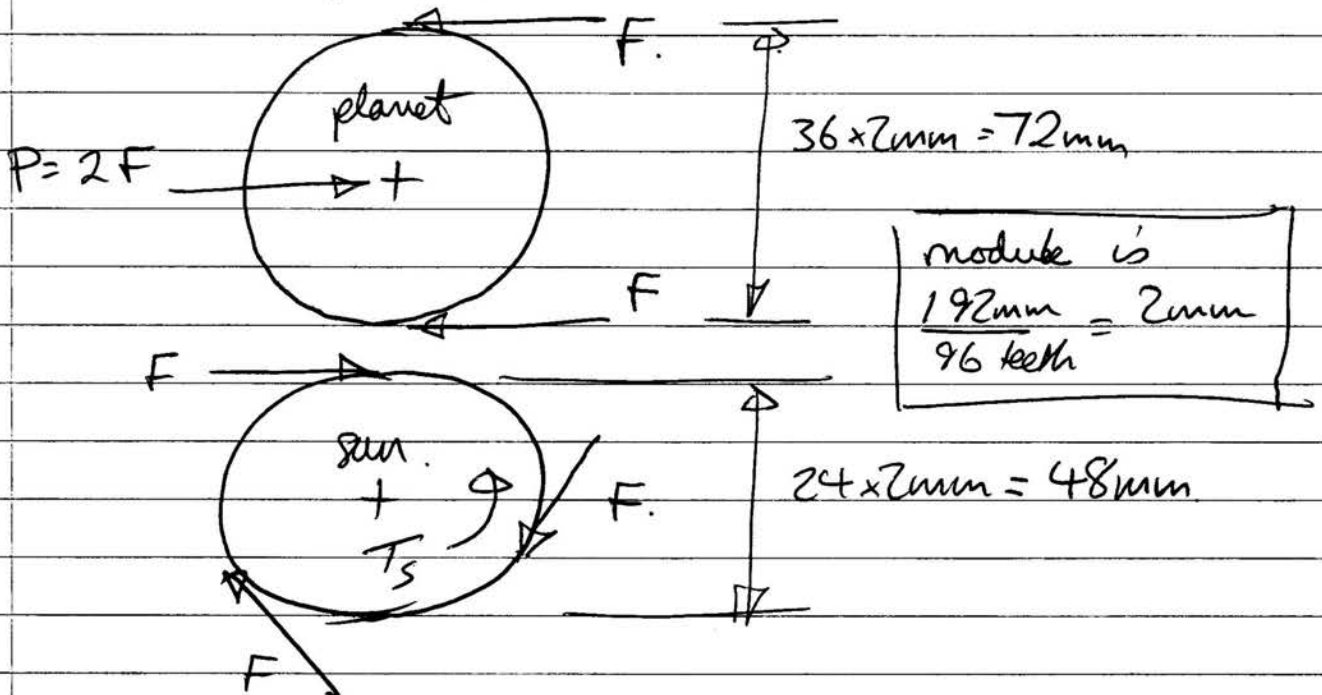 F.
planet
36 × 2mm = 72mm
P = 2F
+
F
module is
192mm
96 teeth
= 2mm
F
sun.
+
F.
24 × 2mm = 48mm
Ts
F